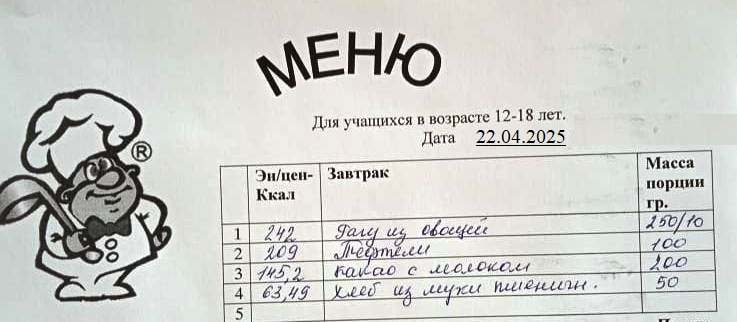 МЕНЮ
®
Для учащихся в возрасте 12-18 лет.
Дата 22.04.2025
Эн/цен-Ккал Завтрак Масса порции гр.
1 242 Рагу из овощей 250/10
2 209 Тефтели 100
3 145,2 какао с молоком 200
4 63,49 хлеб из муки пшеничн. 50
5